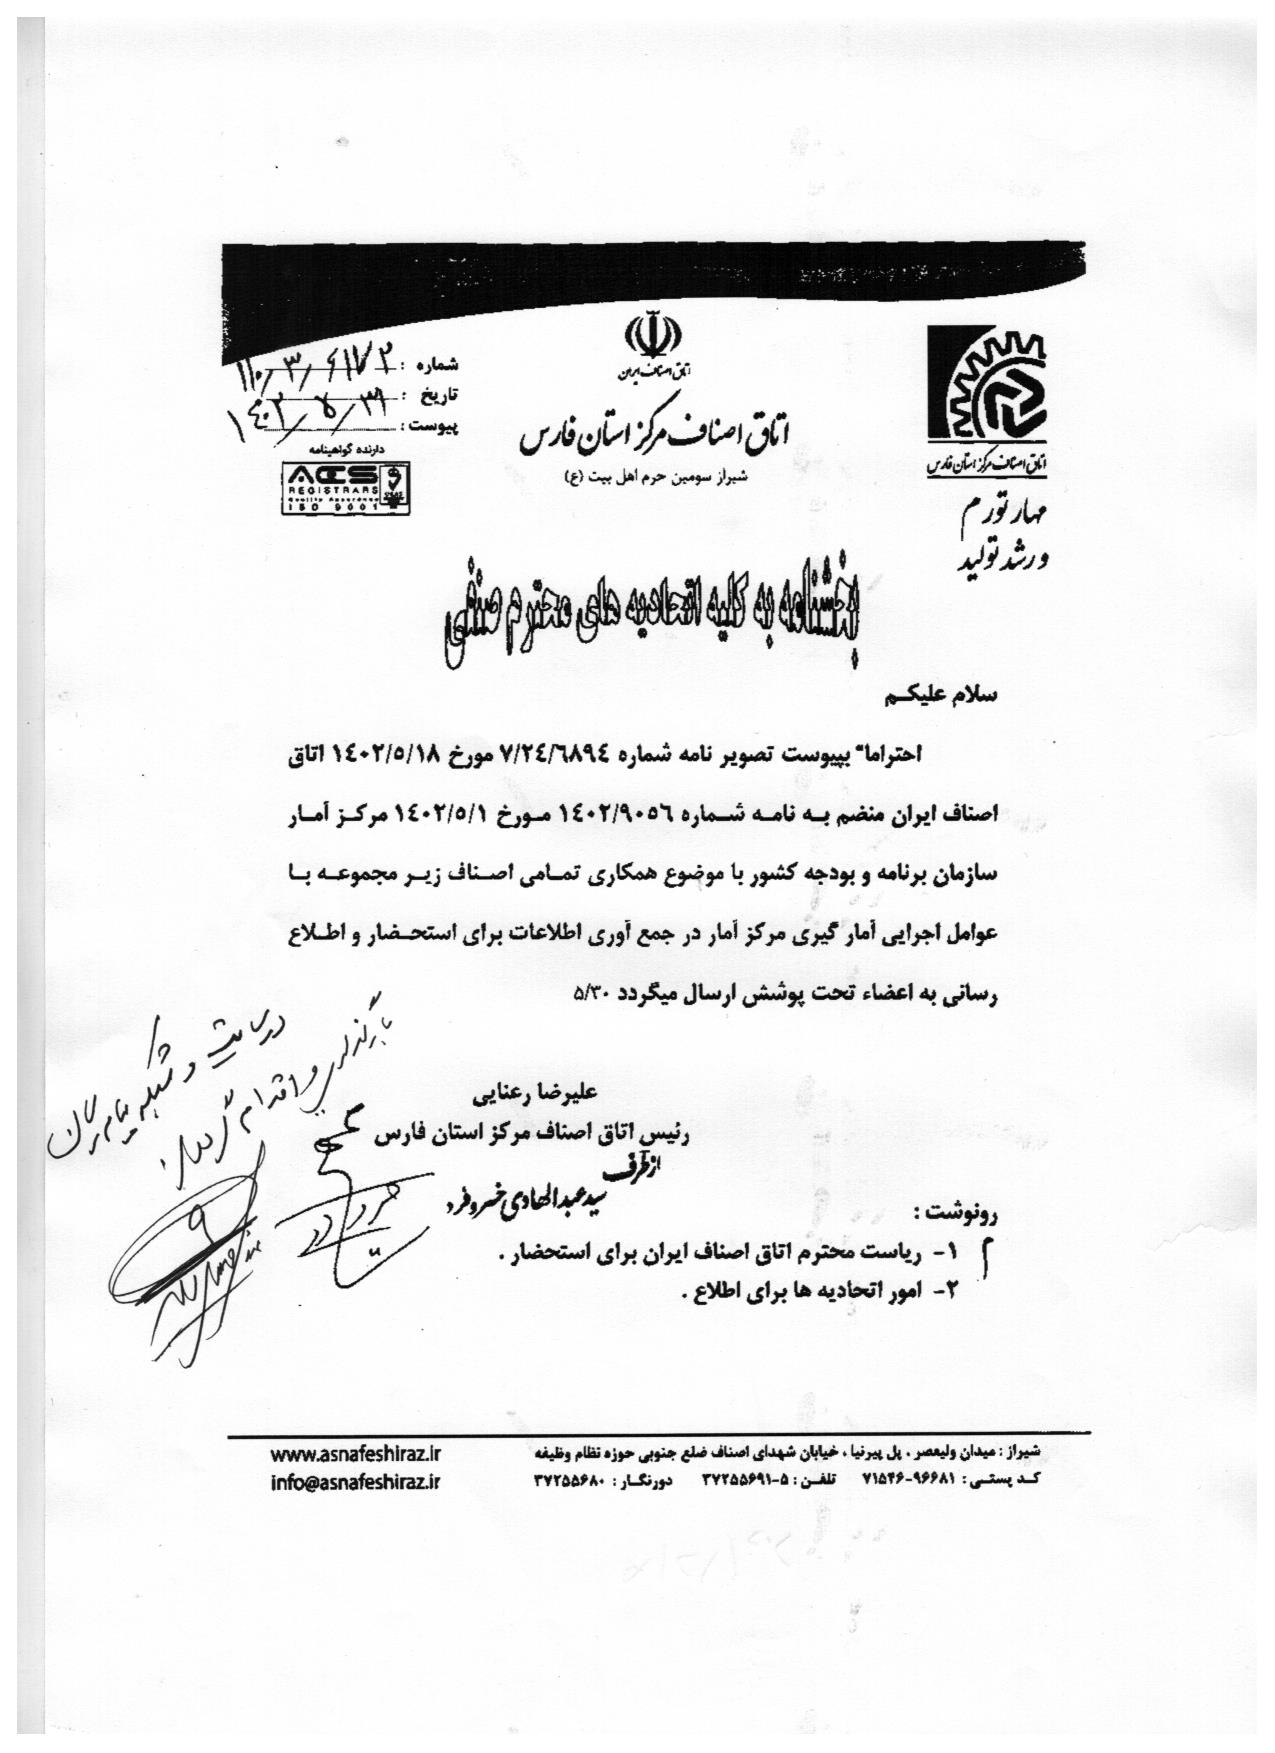 اتاق اصناف ایران
اتاق اصناف مرکز استان فارس
شیراز سومین حرم اهل بیت (ع)
اتاق اصناف مرکز استان فارس
مهار تورم
و رشد تولید
شماره : ۱۱۰/۳/۶۱۷۲
تاریخ : ۱۴۰۲/۵/۳۱
پیوست :
دارنده گواهینامه
ACS
REGISTRARS
Quality Assurance
ISO 9001
بخشنامه به کلیه اتحادیه های محترم صنفی
سلام علیکم
احتراما" بپیوست تصویر نامه شماره ۷/۲٤/٦۸۹٤ مورخ ۱٤۰۲/۵/۱۸ اتاق
اصناف ایران منضم به نامه شماره ۱٤۰۲/۹۰۵٦ مورخ ۱٤۰۲/۵/۱ مرکز آمار
سازمان برنامه و بودجه کشور با موضوع همکاری تمامی اصناف زیر مجموعه با
عوامل اجرایی آمار گیری مرکز آمار در جمع آوری اطلاعات برای استحضار و اطلاع
رسانی به اعضاء تحت پوشش ارسال میگردد ۵/۳۰
علیرضا رعنایی
رئیس اتاق اصناف مرکز استان فارس
از طرف
سید عبدالهادی خسروفرد
در سایت و شبکه پیام رسان
بارگذاری و اقدام گردد.
رونوشت :
۱- ریاست محترم اتاق اصناف ایران برای استحضار .
۲- امور اتحادیه ها برای اطلاع .
شیراز : میدان ولیعصر ، پل پیرنیا ، خیابان شهدای اصناف ضلع جنوبی حوزه نظام وظیفه
کد پستی : ۹۶۶۸۱-۷۱۵۴۶ تلفن : ۵-۳۷۲۵۵۶۹۱ دورنگار : ۳۷۲۵۵۶۸۰
www.asnafeshiraz.ir
info@asnafeshiraz.ir